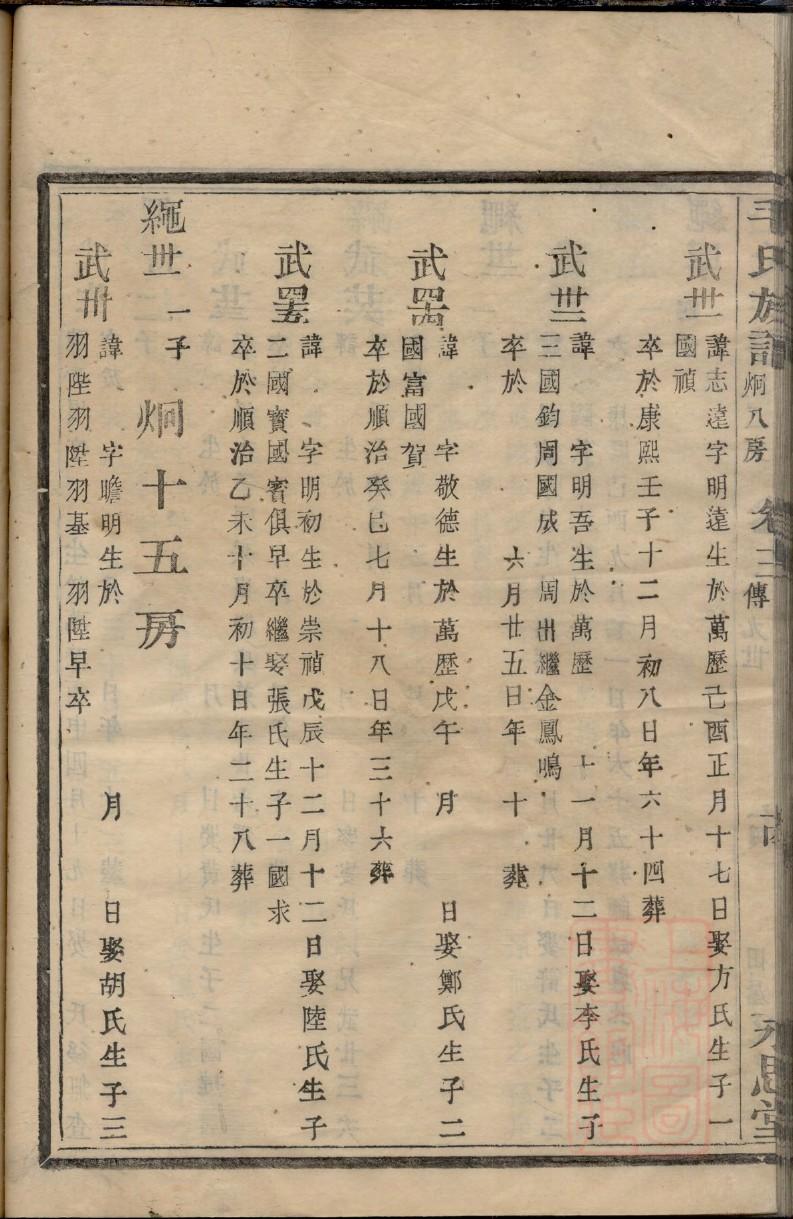 毛氏族譜 炯八房 卷三 傳 永思堂
武卌一 諱志遠字明遠生於萬歷己酉正月十七日娶方氏生子一
國禎
卒於康熙壬子十二月初八日年六十四葬
武卌二 諱 字明吾生於萬歷 十一月十二日娶李氏生子
三國鈞周國成 周出繼金鳳鳴
卒於 六月廿五日年 十 葬
諱 字敬德生於萬歷戊午 月 日娶鄭氏生子二
國富國賀
卒於順治癸巳七月十八日年三十六葬
諱 字明初生於崇禎戊辰十二月十二日娶陸氏生子
二國寳國賓俱早卒繼娶張氏生子一國求
卒於順治乙未十月初十日年二十八葬
繩卋 一子 炯十五房
武卅 諱 字瞻明生於 月 日娶胡氏生子三
羽陛羽陞羽基 羽陞早卒